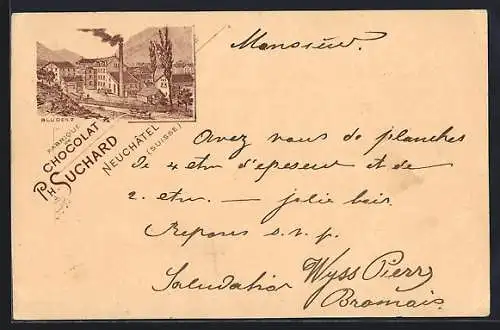 BLUDENZ
FABRIQUE
DE
CHOCOLAT
PH. SUCHARD
NEUCHÂTEL
(SUISSE)
Monsieur.
Avez vous de planches
de 4 ctm d'epeseur et de
2. ctm. — jolie bois.
Repons s. v. p.
Saludatios Wyss Pierre
Bramois